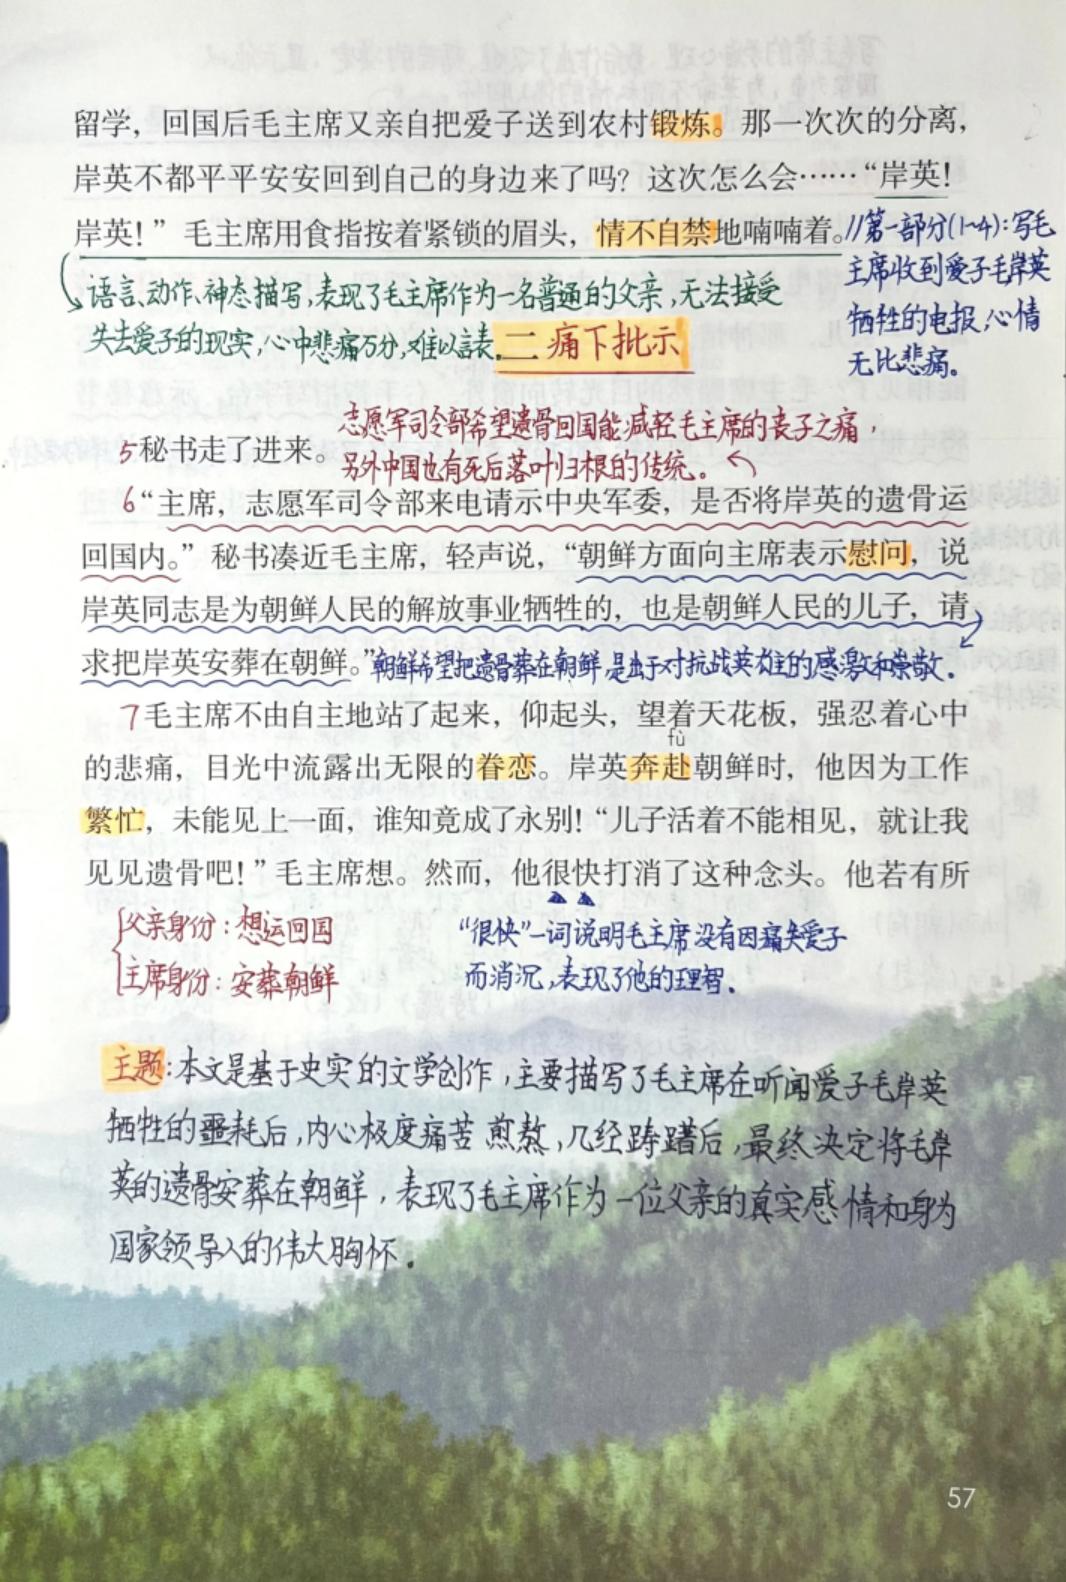 留学，回国后毛主席又亲自把爱子送到农村锻炼。那一次次的分离，
岸英不都平平安安回到自己的身边来了吗？这次怎么会……“岸英！
岸英！”毛主席用食指按着紧锁的眉头，情不自禁地喃喃着。
//第一部分(1~4)：写毛
主席收到爱子毛岸英
牺牲的电报，心情
无比悲痛。
语言、动作、神态描写，表现了毛主席作为一名普通的父亲，无法接受
失去爱子的现实，心中悲痛万分，难以言表。
二 痛下批示
志愿军司令部希望遗骨回国能减轻毛主席的丧子之痛，
另外中国也有死后落叶归根的传统。
5 秘书走了进来。
6 “主席，志愿军司令部来电请示中央军委，是否将岸英的遗骨运
回国内。”秘书凑近毛主席，轻声说，“朝鲜方面向主席表示慰问，说
岸英同志是为朝鲜人民的解放事业牺牲的，也是朝鲜人民的儿子，请
求把岸英安葬在朝鲜。”
朝鲜希望把遗骨葬在朝鲜，是出于对抗战英雄的感激和崇敬。
7 毛主席不由自主地站了起来，仰起头，望着天花板，强忍着心中
fù
的悲痛，目光中流露出无限的眷恋。岸英奔赴朝鲜时，他因为工作
繁忙，未能见上一面，谁知竟成了永别！“儿子活着不能相见，就让我
见见遗骨吧！”毛主席想。然而，他很快打消了这种念头。他若有所
父亲身份：想运回国
主席身份：安葬朝鲜
“很快”一词说明毛主席没有因痛失爱子
而消沉，表现了他的理智。
主题：本文是基于史实的文学创作，主要描写了毛主席在听闻爱子毛岸英
牺牲的噩耗后，内心极度痛苦煎熬，几经踌躇后，最终决定将毛岸
英的遗骨安葬在朝鲜，表现了毛主席作为一位父亲的真实感情和身为
国家领导人的伟大胸怀。
57